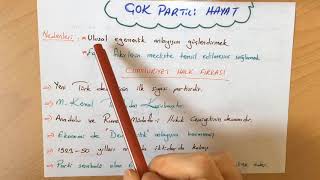 ÇOK PARTİLİ HAYAT
Nedenleri: Ulusal egemenlik anlayışını güçlendirmek
fikirlerin mecliste temsil edilmesini sağlamak
CUMHURİYET HALK FIRKASI
Yeni Türk devletinin ilk siyasi partisidir.
M. Kemal tarafından kurulmuştur
Anadolu ve Rumeli Müdafaa-i Hukuk Cemiyetinin devamıdır.
Ekonomide "Dev anlayışını
1923-50 yılları iktidarda kalmış
Parti sembolü olan